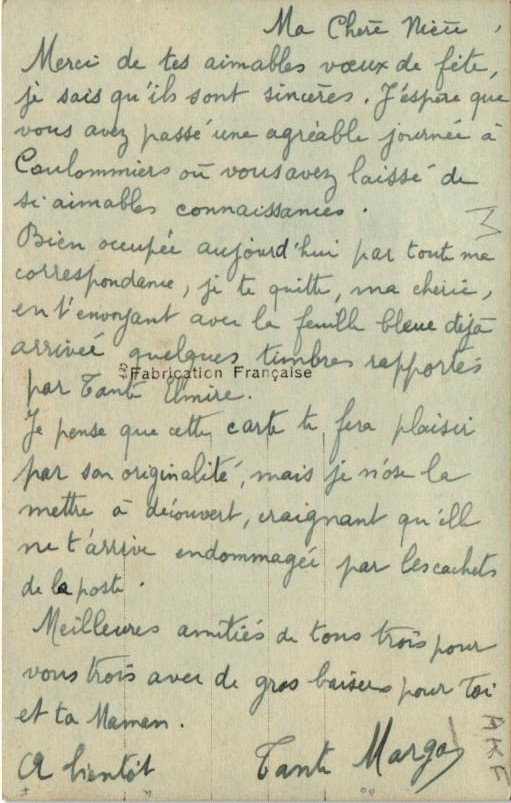 Ma Chère Nièce,
Merci de tes aimables vœux de fête,
je sais qu'ils sont sincères. J'espère que
vous avez passé une agréable journée à
Coulommiers où vous avez laissé de
si aimables connaissances.
Bien occupée aujourd'hui par toute ma
correspondance, je te quitte, ma chérie,
en t'envoyant avec la feuille bleue déjà
arrivée quelques timbres rapportés
Fabrication Française
par Tante Elmire.
Je pense que cette carte te fera plaisir
par son originalité, mais je n'ose la
mettre à découvert, craignant qu'elle
ne t'arrive endommagée par les cachets
de la poste.
Meilleures amitiés de tous trois pour
vous trois avec de gros baisers pour Toi
et ta Maman.
A bientôt Tante Margo
AKF